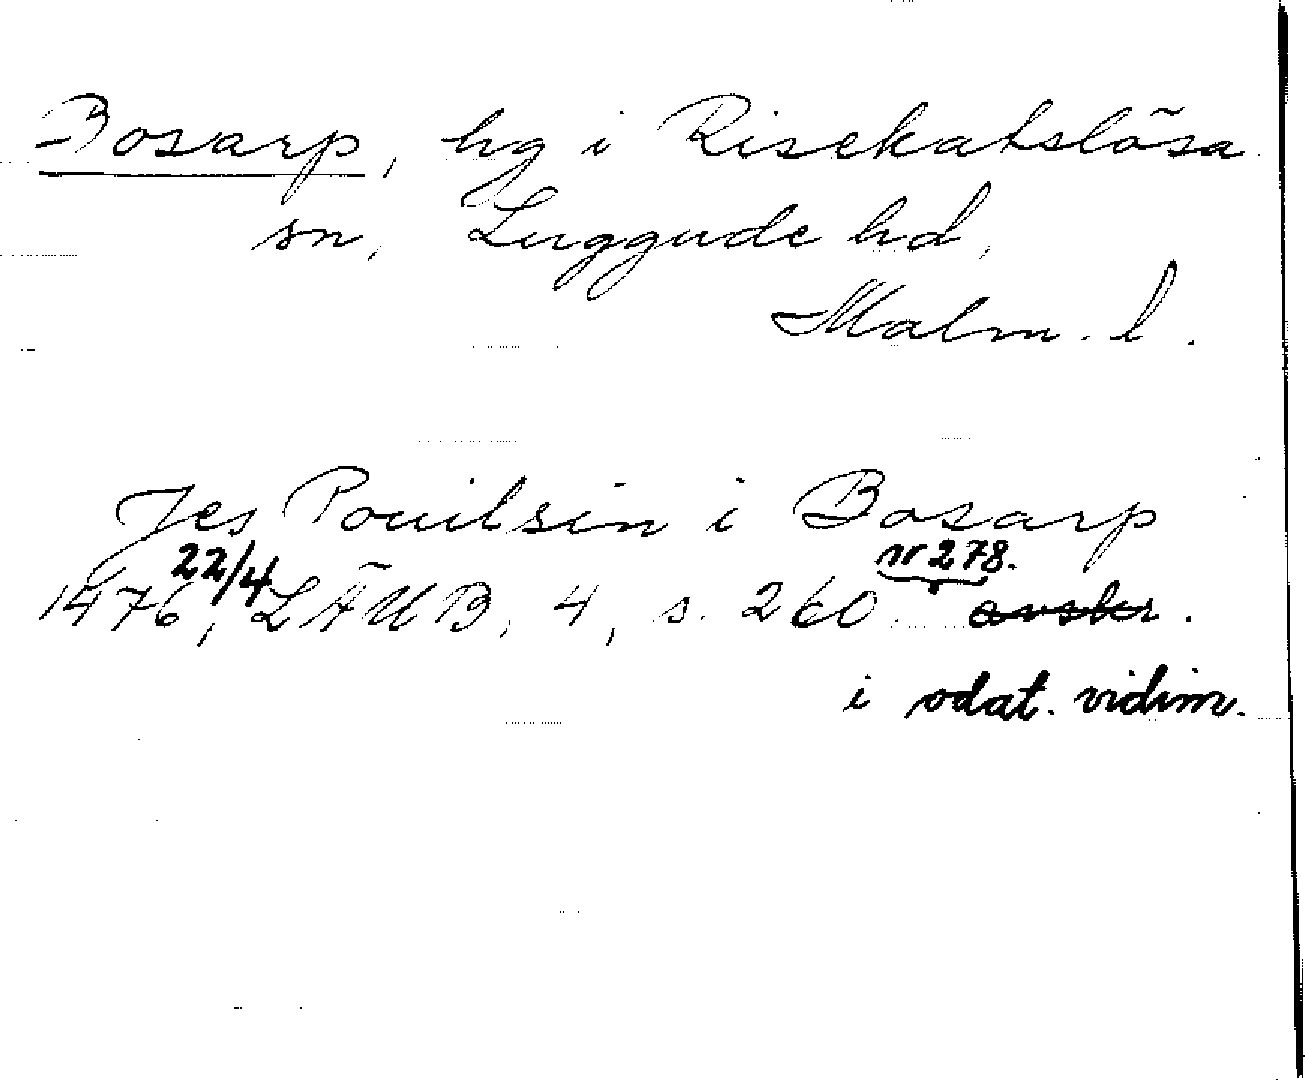 Bosarp, hg i Risekatslösa
sn, Luggude hd,
Malm. l.
Jes Pouilsin i Bosarp
1476 22/4, LÄUB, 4, s. 260 nr 278. avskr.
i odat. vidim.